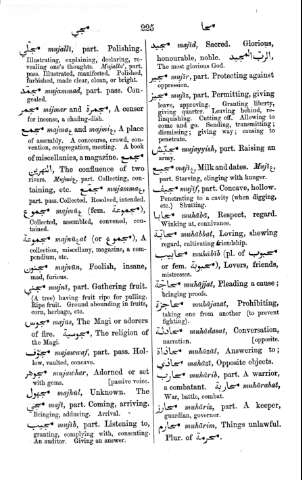 مجي
225
محا
مجلي majallí, part. Polishing.
Illustrating, explaining, declaring, re-
vealing one's thoughts. Majallí, part.
pass. Illustrated, manifested. Polished,
furbished, made clear, clean, or bright.
majammad, part. pass. Con-
gealed.
مجمر majmar and مجمرة A censer
for incense, a chafing-dish.
مجمع majmaa, and majmia, A place
of assembly. A concourse, crowd, con-
vention, congregation, meeting. A book
of miscellanies, a magazine. مجمع
النهرين The conflux of two
rivers. Mujmia, part. Collecting, con-
taining, etc. مجمع mujammaa,
part. pass. Collected, Resolved, intended.
مجموع majmúa (fem. مجموعة),
Collected, assembled, convened, con-
trived.
مجموعة majmúaat (or مجموع), A
collection, miscellany, magazine, a com-
pendium, etc.
مجنون majnún, Foolish, insane,
mad, furious.
majní, part. Gathering fruit.
(A tree) having fruit ripe for pulling.
Ripe fruit. Ground abounding in fruits,
corn, herbage, etc.
مجوس majús, The Magi or adorers
of fire. مجوسية The religion of
the Magi.
مجوف majawwaf, part. pass. Hol-
low, vaulted, concave.
مجوهر majawhar, Adorned or set
with gems. [passive voice.
مجهول majhul, Unknown. The
مجي majî, part. Coming, arriving.
Bringing, adducing. Arrival.
مجيب mujíb, part. Listening to,
granting, complying with, consenting.
An auditor. Giving an answer.
مجيد majíd, Sacred. Glorious,
honourable, noble. الرب المجيد
The most glorious God.
مجير majír, part. Protecting against
oppression.
مجيز majíz, part. Permitting, giving
leave, approving. Granting liberty,
giving quarter. Leaving behind, re-
linquishing. Cutting off. Allowing to
come and go. Sending, transmitting;
dismissing; giving way; causing to
penetrate.
مجيش majayyish, part. Raising an
army.
مجيع majía, Milk and dates. Mujía,
part. Starving, clinging with hunger.
مجيف majíf, part. Concave, hollow.
Penetrating to a cavity (when digging,
etc.) Shutting.
محابا muhábá, Respect, regard.
Winking at, connivance.
muhábbat, Loving, shewing
regard, cultivating friendship.
محابيب mahábíb (pl. of محبوب
or fem. محبوبة), Lovers, friends,
mistresses.
محاجة muhájjat, Pleading a cause;
bringing proofs.
muhájazat, Prohibiting,
taking one from another (to prevent
fighting).
محادثة muhádasat, Conversation,
narration. [opposite.
محاذاة muházát, Answering to;
محاذي muhází, Opposite objects.
محارب muhárib, part. A warrior,
a combatant. محاربة muhárabat,
War, battle, combat.
محارس mahárís, part. A keeper,
guardian, governor.
محارم mahárim, Things unlawful.
Plur. of محرمة.